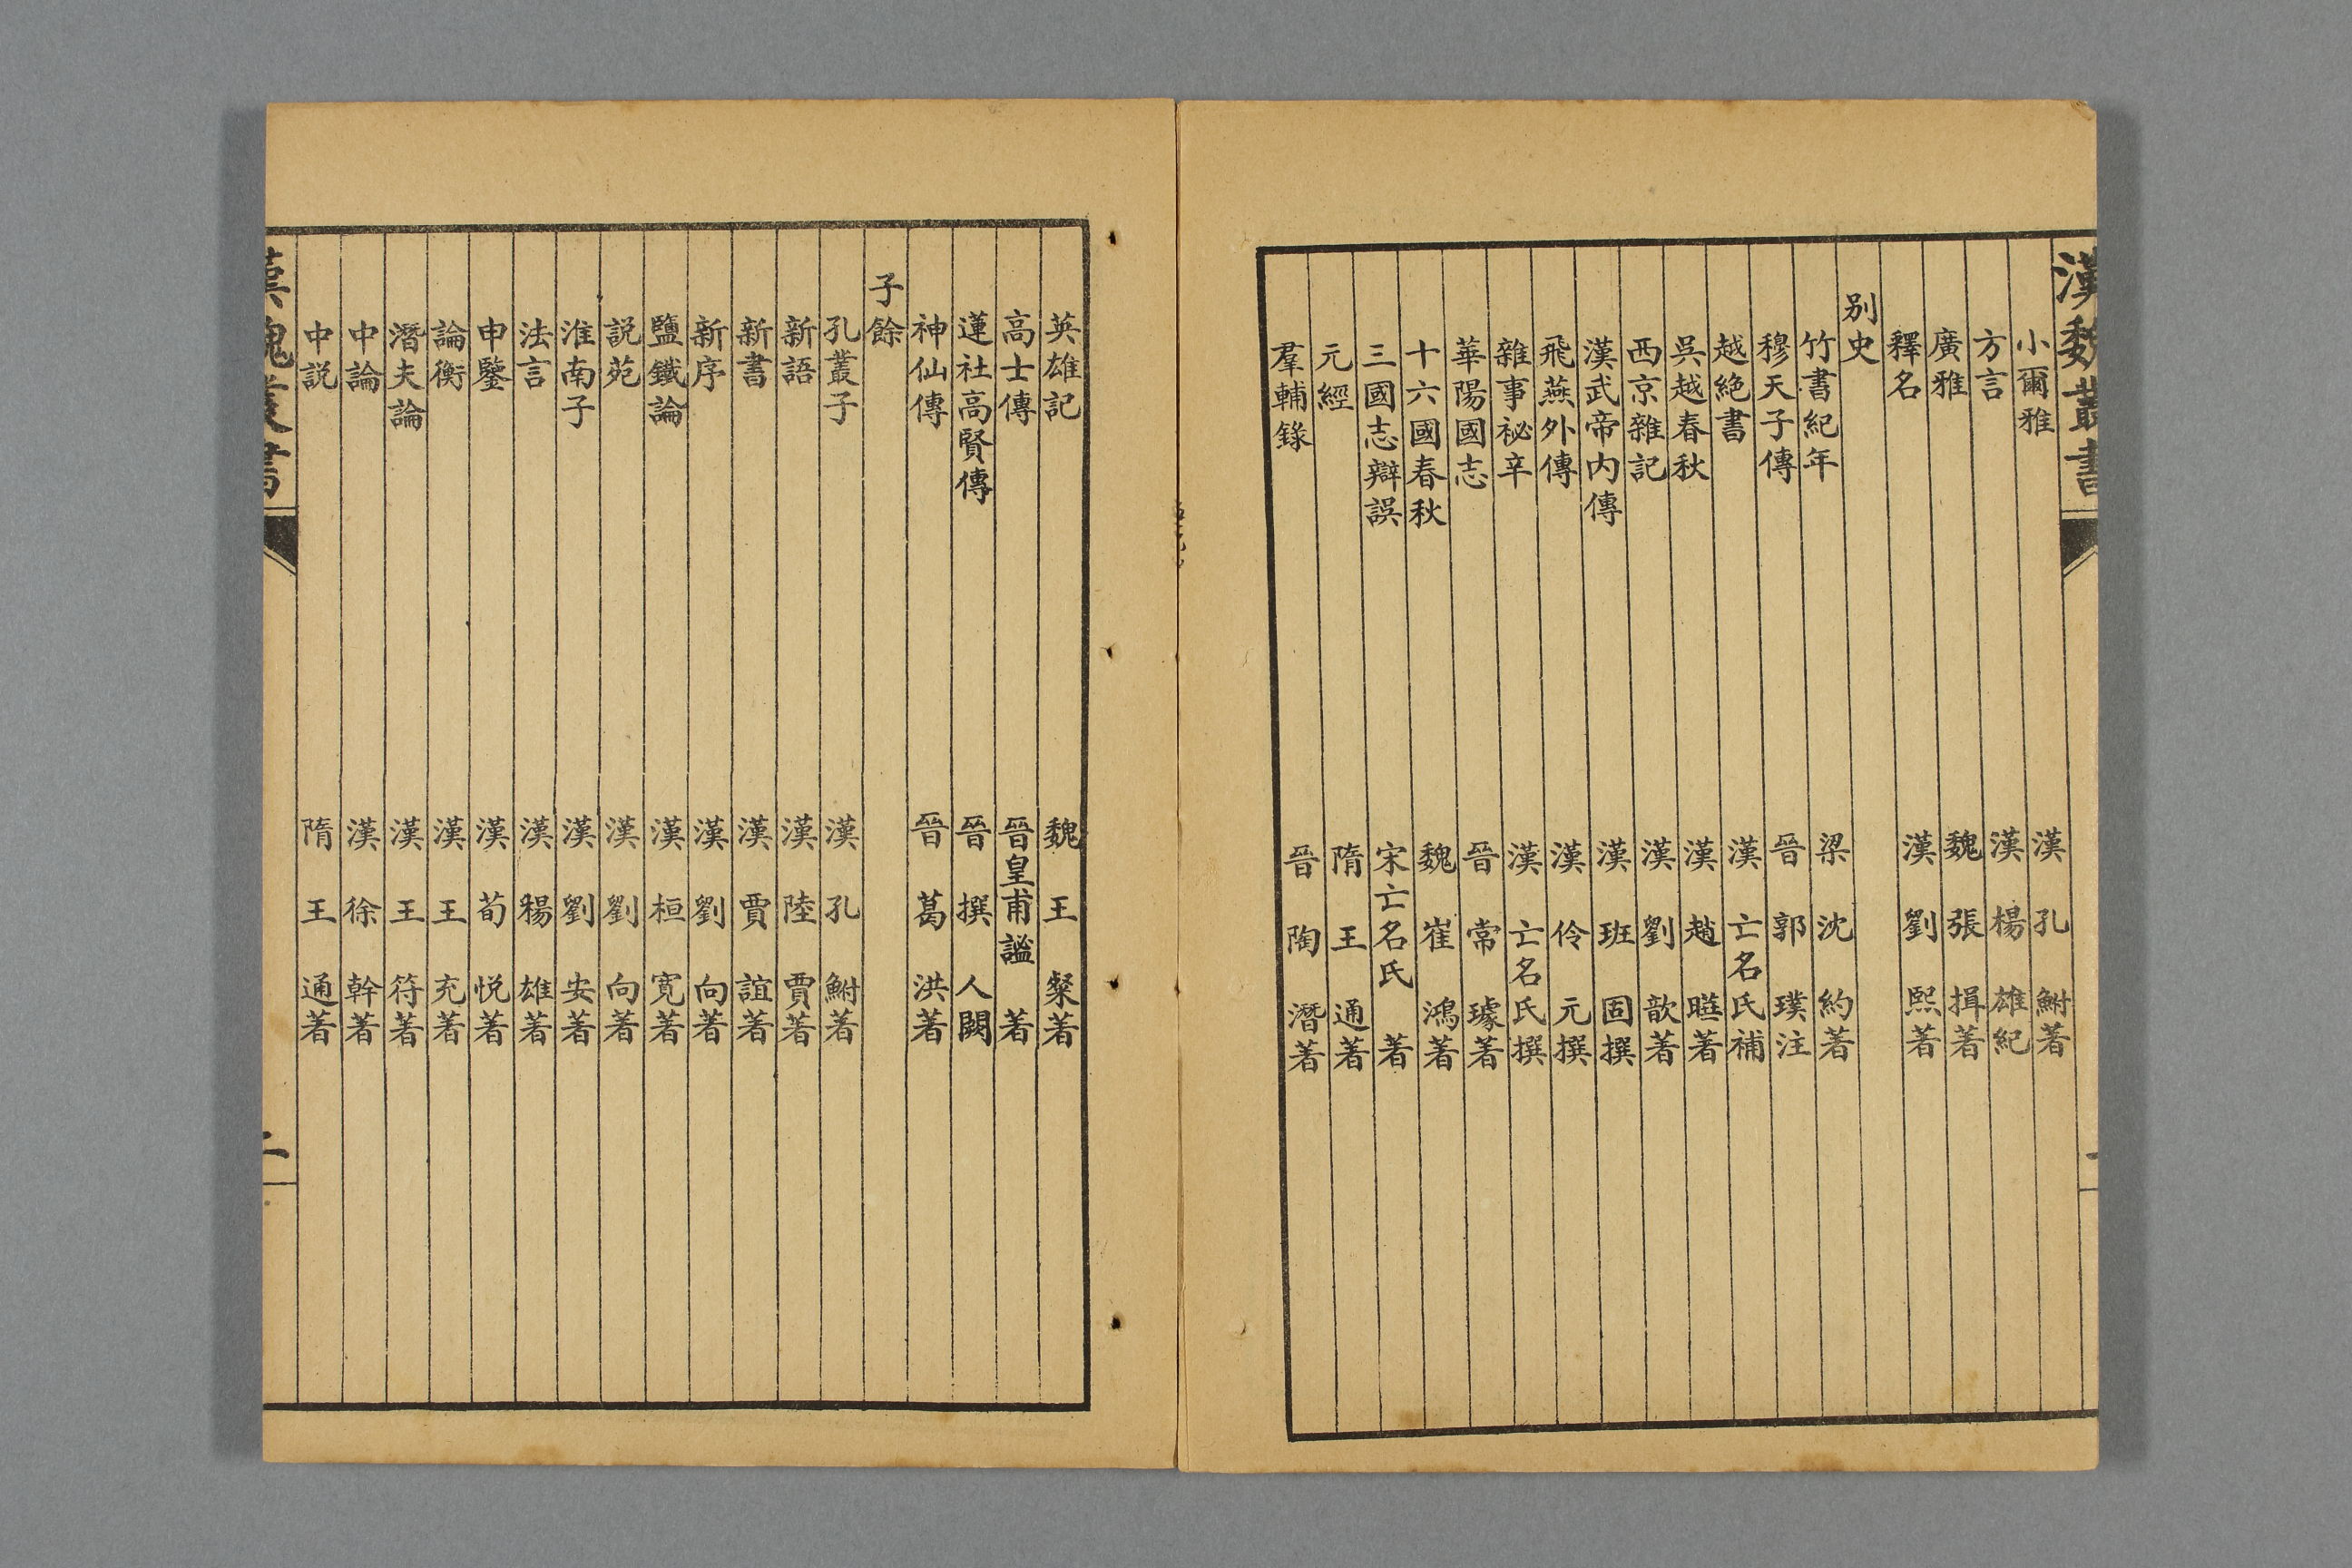 漢魏叢書
小爾雅 漢孔鮒著
方言 漢楊雄紀
廣雅 魏張揖著
釋名 漢劉熙著
别史
竹書紀年 梁沈約著
穆天子傳 晉郭璞注
越絶書 漢亡名氏補
吳越春秋 漢趙曄著
西京雜記 漢劉歆著
漢武帝内傳 漢班固撰
飛燕外傳 漢伶元撰
雜事祕辛 漢亡名氏撰
華陽國志 晉常璩著
十六國春秋 魏崔鴻著
三國志辯誤 宋亡名氏著
元經 隋王通著
羣輔錄 晉陶潛著
英雄記 魏王粲著
高士傳 晉皇甫謐著
蓮社高賢傳 晉撰人闕
神仙傳 晉葛洪著
子餘
孔叢子 漢孔鮒著
新語 漢陸賈著
新書 漢賈誼著
新序 漢劉向著
鹽鐵論 漢桓寛著
説苑 漢劉向著
淮南子 漢劉安著
法言 漢楊雄著
申鑒 漢荀悦著
論衡 漢王充著
潛夫論 漢王符著
中論 漢徐幹著
中説 隋王通著
漢魏叢書
二